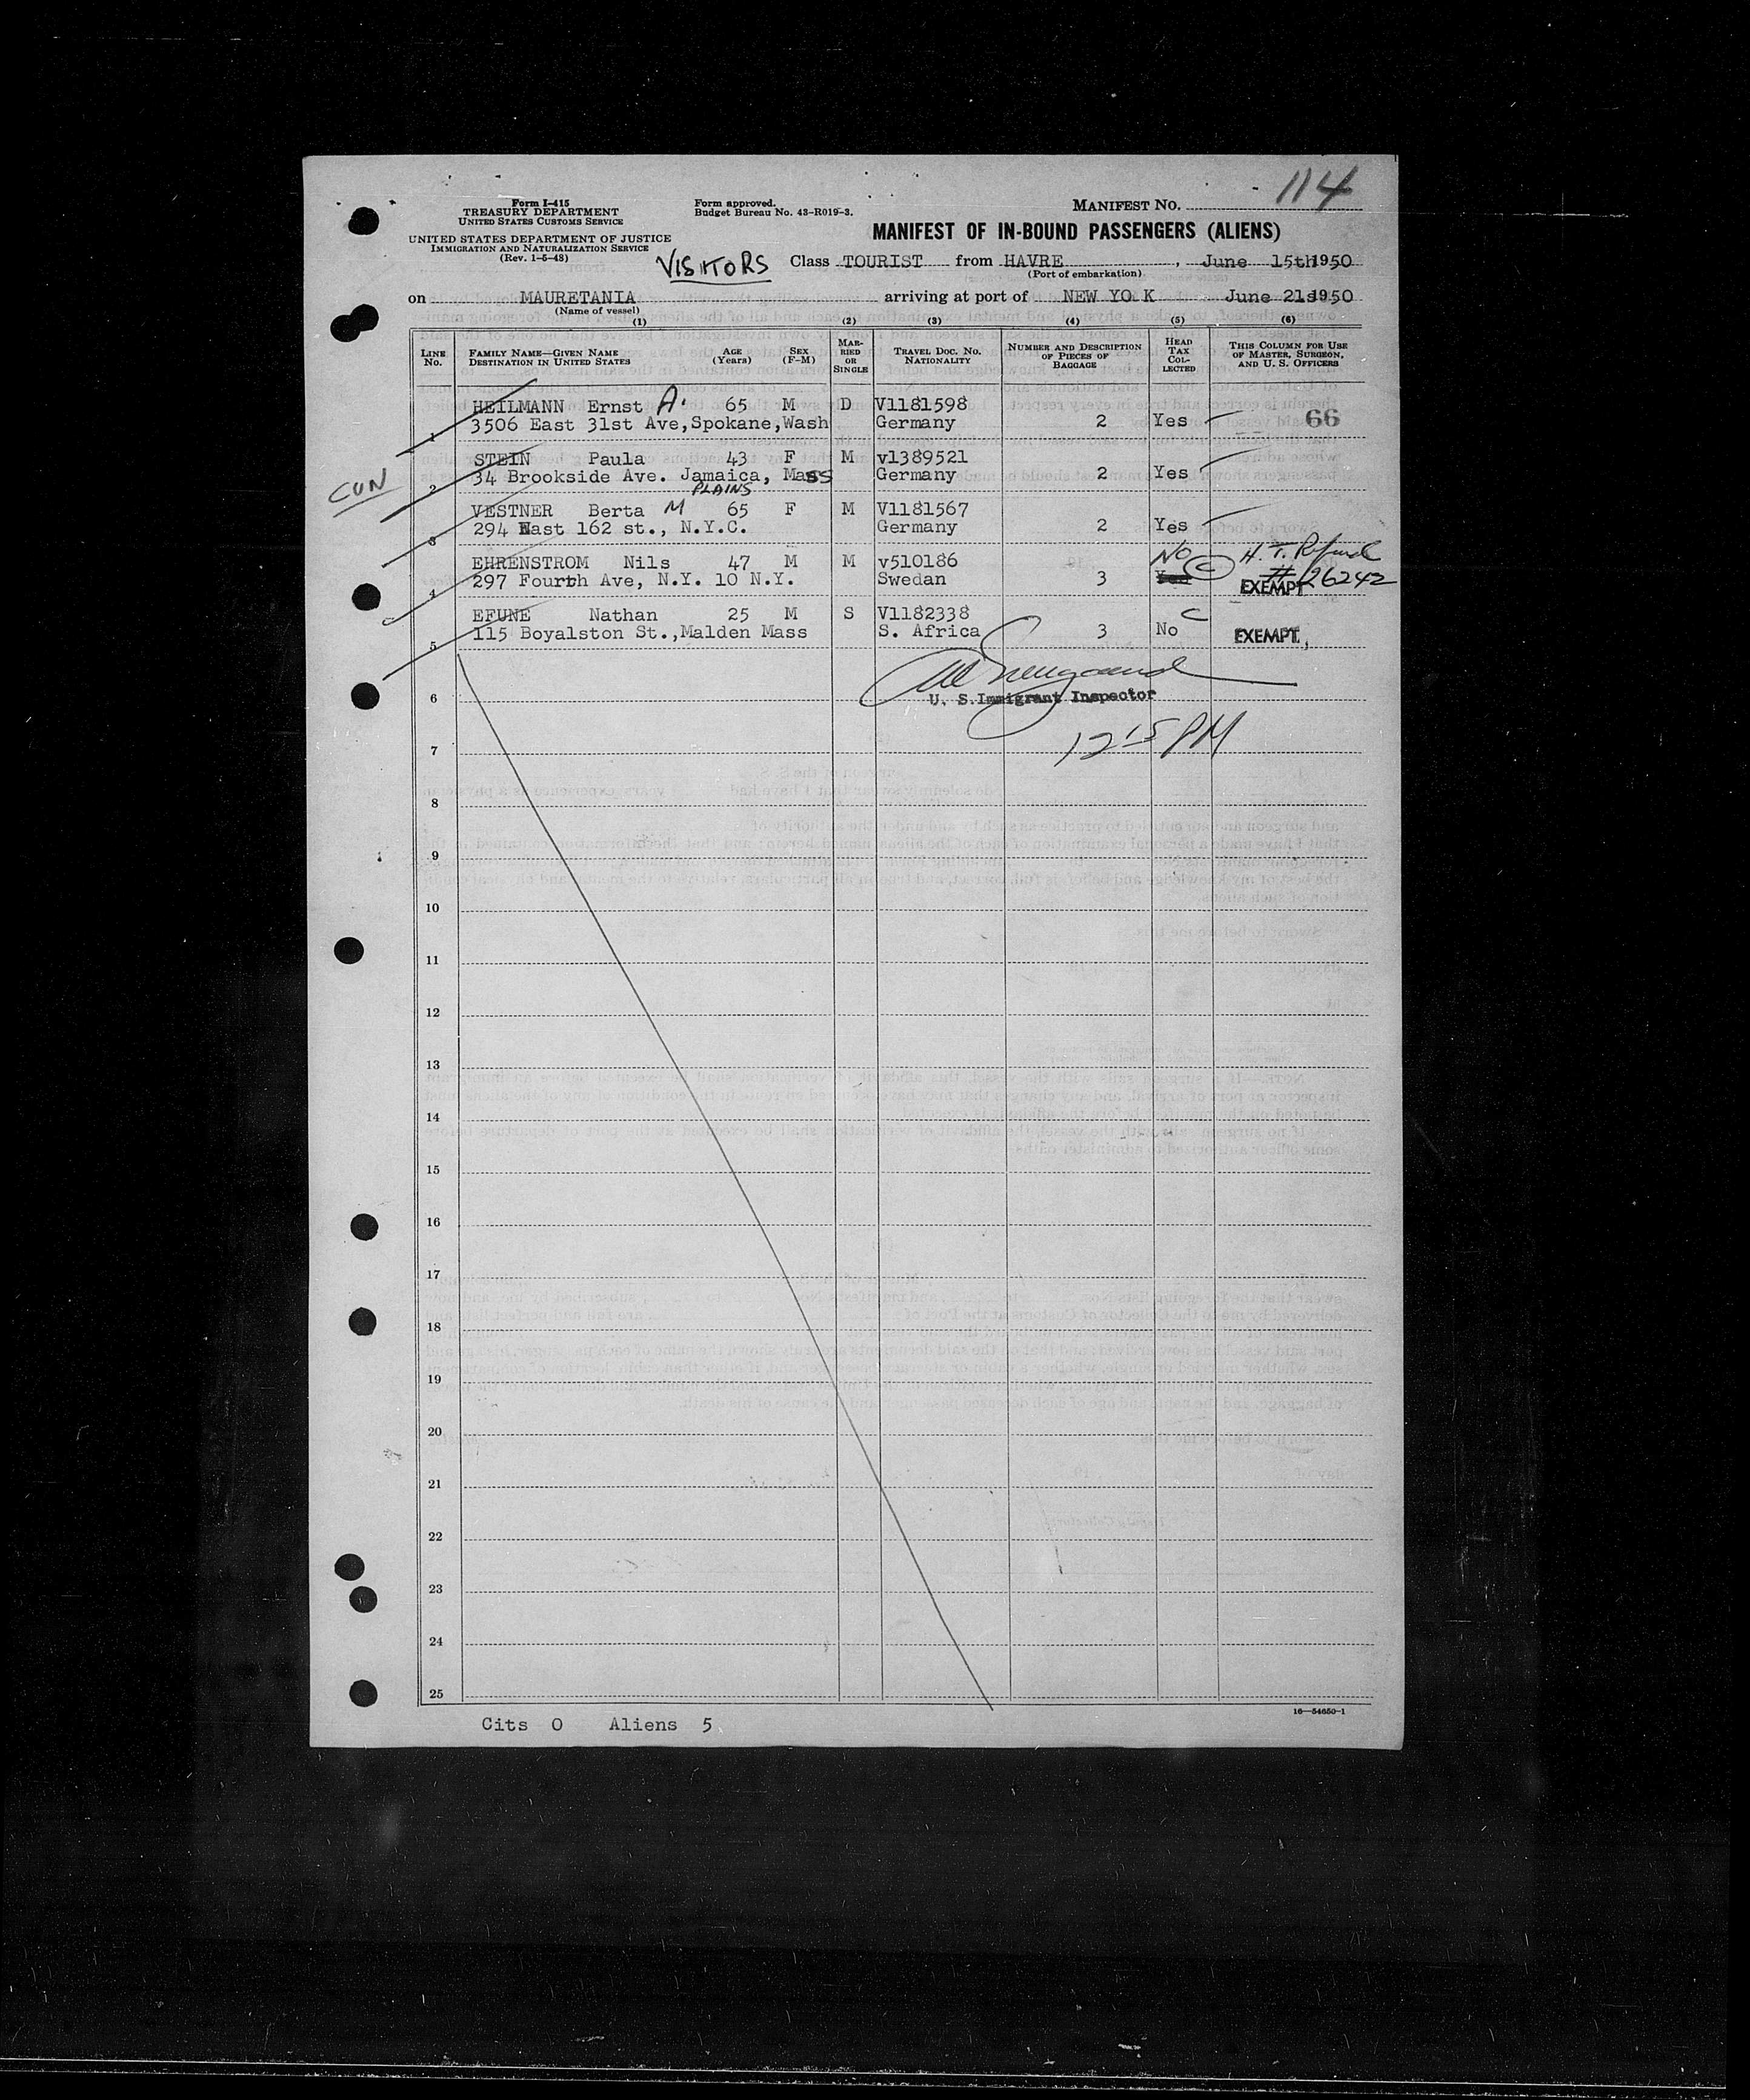 114
Form I-415
TREASURY DEPARTMENT
UNITED STATES CUSTOMS SERVICE
UNITED STATES DEPARTMENT OF JUSTICE
IMMIGRATION AND NATURALIZATION SERVICE
(Rev. 1-5-48)
Form approved.
Budget Bureau No. 43-R019-3.
MANIFEST NO.
MANIFEST OF IN-BOUND PASSENGERS (ALIENS)
VISITORS Class TOURIST from HAVRE, June 15th 1950
(Port of embarkation)
on MAURETANIA arriving at port of NEW YO K June 21st 1950
(Name of vessel)
(1) (2) (3) (4) (5) (6)
LINE No. FAMILY NAME—GIVEN NAME DESTINATION IN UNITED STATES AGE (Years) SEX (F-M) MARRIED OR SINGLE TRAVEL DOC. NO. NATIONALITY NUMBER AND DESCRIPTION OF PIECES OF BAGGAGE HEAD TAX COLLECTED THIS COLUMN FOR USE OF MASTER, SURGEON, AND U. S. OFFICERS
HEILMANN Ernst A. 65 M D V1181598
1 3506 East 31st Ave,Spokane,Wash Germany 2 Yes 66
STEIN Paula 43 F M v1389521
CUN 2 34 Brookside Ave. Jamaica, Mass Germany 2 Yes
PLAINS
VESTNER Berta M 65 F M V1181567
3 294 East 162 st., N.Y.C. Germany 2 Yes
EHRENSTROM Nils 47 M M v510186 No C H. T. Refund
4 297 Fourth Ave, N.Y. 10 N.Y. Swedan 3 Yes # 26242
EXEMPT
EFUNE Nathan 25 M S V1182338 C
5 115 Boyalston St.,Malden Mass S. Africa 3 No EXEMPT,
6 U. S. Immigrant Inspector
12 15 PM
7
8
9
10
11
12
13
14
15
16
17
18
19
20
21
22
23
24
25
16—54650-1
Cits 0 Aliens 5